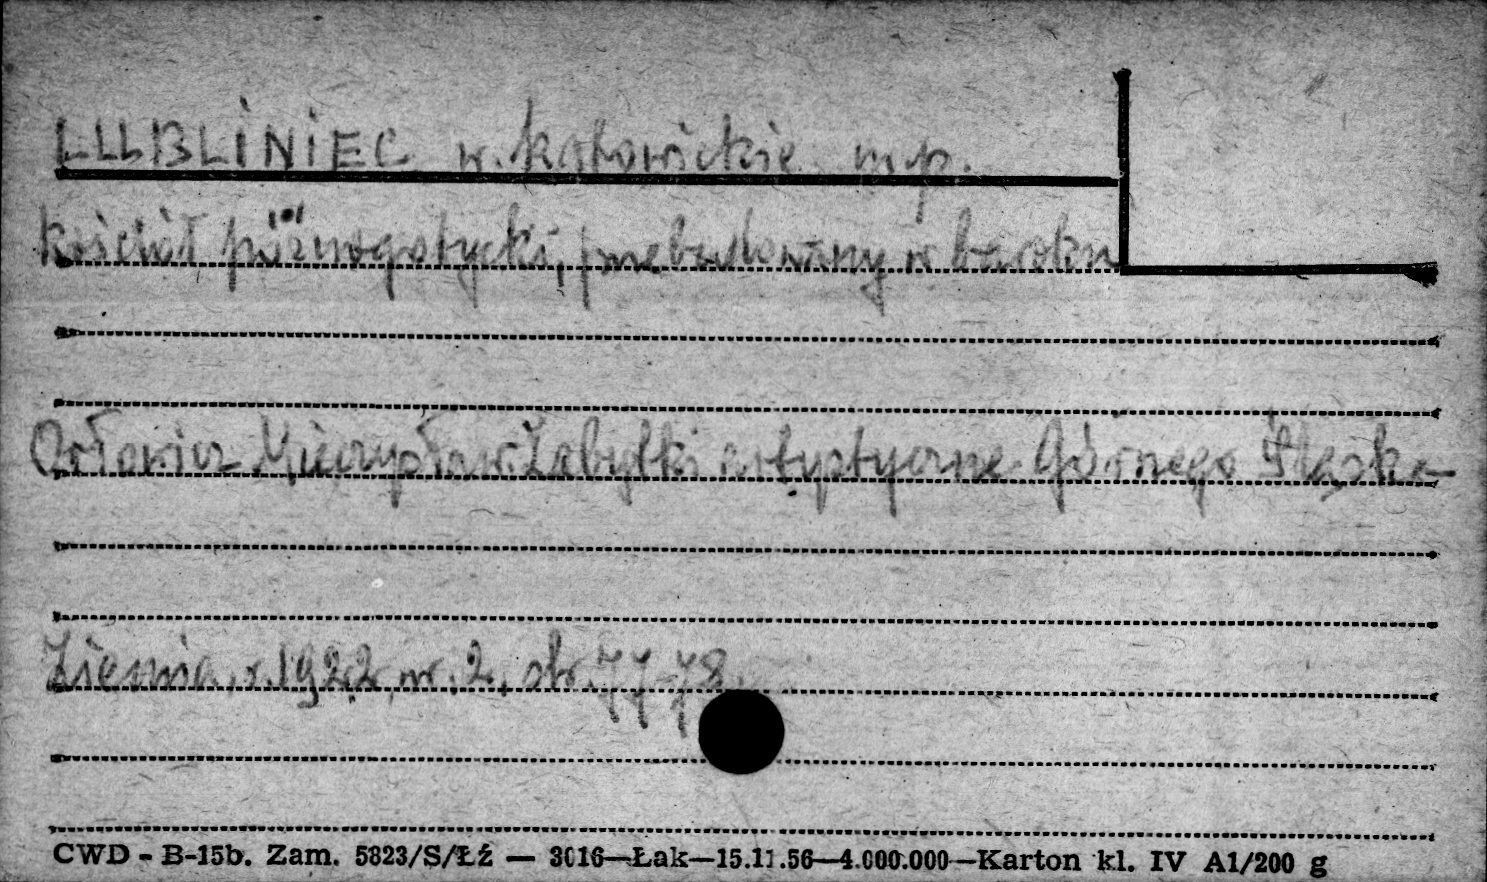 LUBLINIEC w. katowickie m.p.
kościół późnogotycki, przebudowany w baroku
Orłowicz Mieczysław: Zabytki artystyczne Górnego Śląska
Ziemia, r. 1922, nr. 2, str. 77-78.
CWD - B-15b. Zam. 5823/S/Łź — 3016—Łak—15.11.56—4.000.000—Karton kl. IV A1/200 g